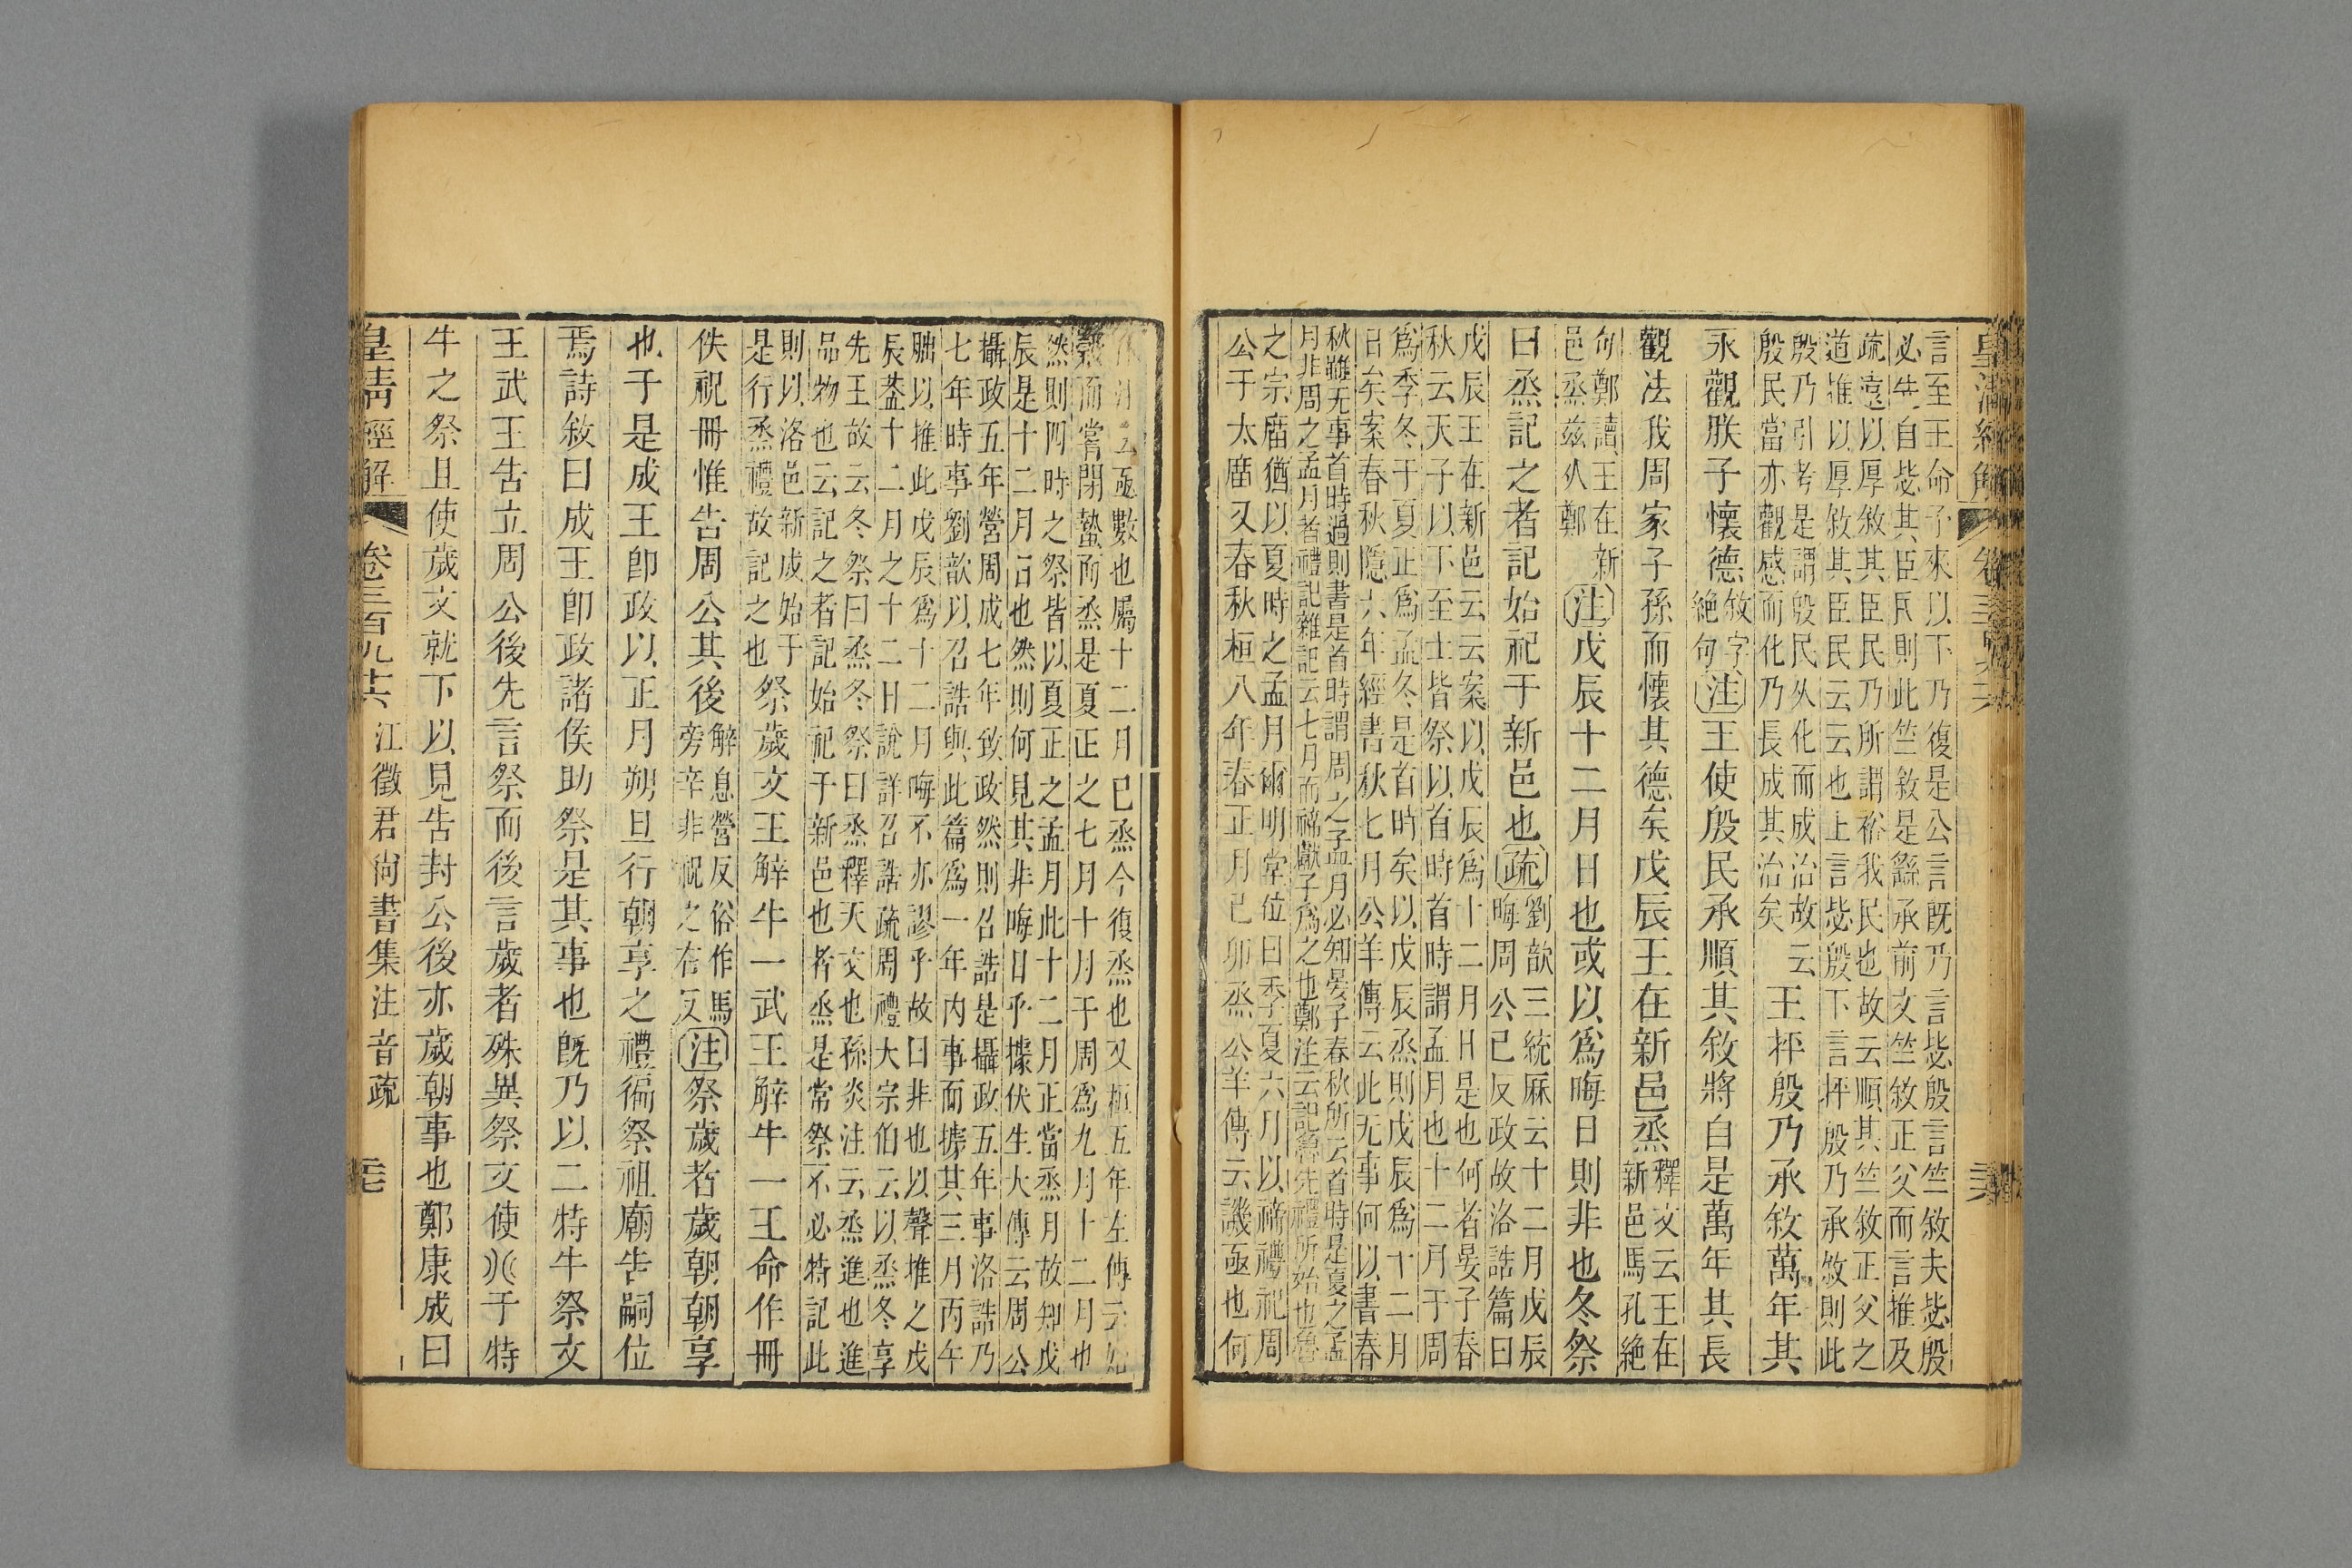 言至王命予來以下乃復是公言既乃言毖殷言竺敘夫毖殷
必先自毖其臣𠂢則此竺敘是繇承前文竺敘正父而言推及
疏遠以厚敘其臣民乃所謂裕我民也故云順其竺敘正父之
道推以厚敘其臣民云云也上言毖殷下言抨殷乃承敘則此
殷乃引考是謂殷民㳄化而成治故云
殷民當亦觀感而化乃長成其治矣
王抨殷乃承敘萬年其
永觀朕子懷德
敘字
絕句
注王使殷民承順其敘將自是萬年其長
觀法我周家子孫而懷其德矣戊辰王在新邑烝
釋文云王在
新邑馬孔絕
句鄭讀王在新
邑烝兹从鄭
注戊辰十二月日也或以爲晦日則非也冬祭
曰烝記之者記始祀于新邑也疏
劉歆三統厤云十二月戊辰
晦周公已反政故洛誥篇曰
戊辰王在新邑云云案以戊辰爲十二月日是也何者晏子春
秋云天子以下至士皆祭以首時首時謂孟月也十二月于周
爲季冬于夏正爲孟冬是首時矣以戊辰烝則戊辰爲十二月
日矣案春秋隱六年經書秋七月公羊傳云此无事何以書春
秋雖无事首時過則書是首時謂周之孟月必知晏子春秋所云首時是夏之孟
月非周之孟月者禮記雜記云七月而禘獻子爲之也鄭注云記魯先禮所始也魯
之宗廟猶以夏時之孟月爾明堂位曰季夏六月以禘禮祀周
公于太廟又春秋桓八年春正月己卯烝公羊傳云譏亟也何
亟數也屬十二月已烝今復烝也又桓五年左傳云
而嘗閉蟄而烝是夏正之七月十月于周爲九月十二月也
然則四時之祭皆以夏正之孟月此十二月正當烝月故知戊
辰是十二月日也然則何見其非晦日乎據伏生大傳云周公
攝政五年營周成七年致政然則召誥是攝政五年事洛誥乃
七年時事劉歆以召誥與此篇爲一年内事而據其三月丙午
朏以推此戊辰爲十二月晦不亦謬乎故曰非也以聲推之戊
辰葢十二月之十二日說詳召誥疏周禮大宗伯云以烝冬享
先王故云冬祭曰烝冬祭曰烝釋天文也孫炎注云烝進也進
品物也云記之者記始祀于新邑也者烝是常祭不必特記此
則以洛邑新成始于
是行烝禮故記之也
祭歲文王觧牛一武王觧牛一王命作冊
佚祝冊惟告周公其後
解息營反俗作馬
旁辛非祝之右反
注祭歲者歲朝朝享
也于是成王卽政以正月朔旦行朝享之禮徧祭祖廟告嗣位
焉詩敘曰成王卽政諸侯助祭是其事也旣乃以二特牛祭文
王武王告立周公後先言祭而後言歲者殊異祭文使㸚于特
牛之祭且使歲文就下以見告封公後亦歲朝事也鄭康成曰
皇清經解
卷三百九十六
江徵君尚書集注音疏